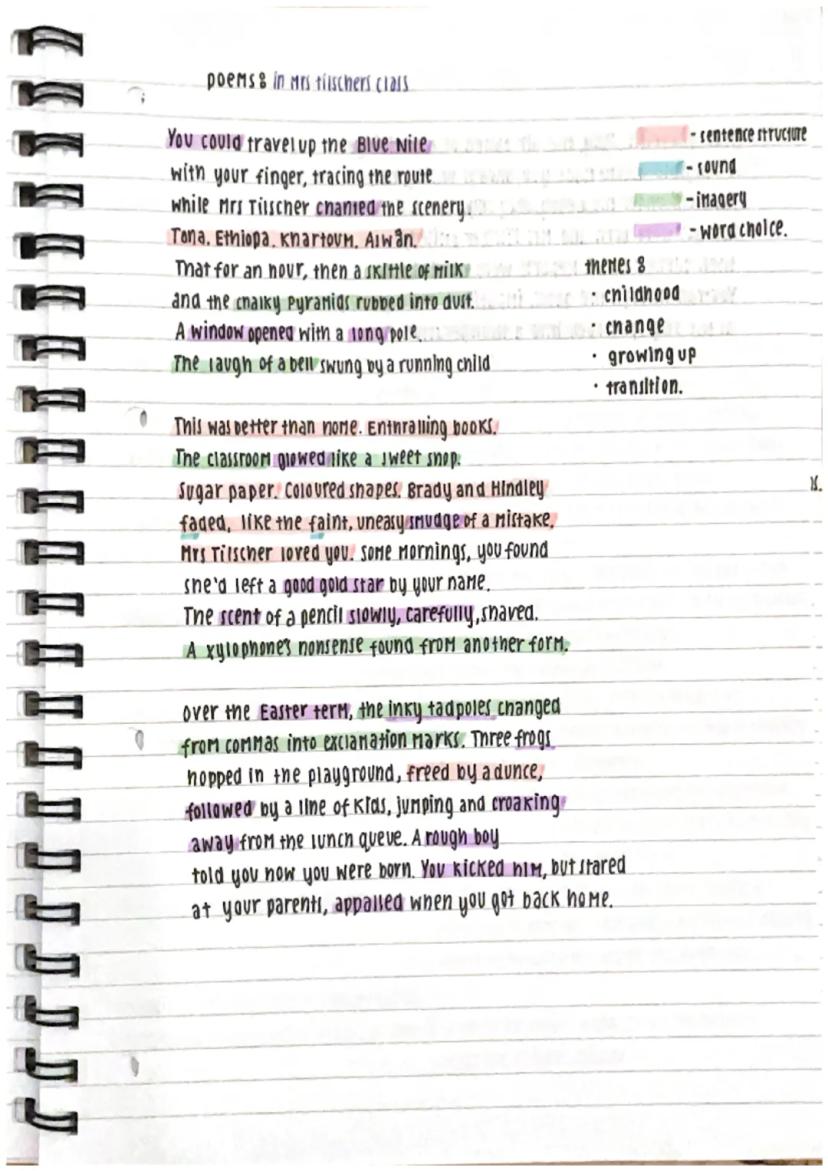 poems: in Mrs Tilschers class
You could travel up the Blue Nile
with your finger, tracing the route
while Mrs Tilscher chanted the scenery.
Tana. Ethiopa. Khartoum. Aswân.
That for an hour, then a skittle of milk
and the chalky pyramids rubbed into dust.
A window opened with a long pole.
The laugh of a bell swung by a running child
This was better than home. Enthralling books.
The classroom glowed like a sweet shop.
Sugar paper. Coloured shapes. Brady and Hindley
faded, like the faint, uneasy smudge of a mistake.
Mrs Tilscher loved you. Some mornings, you found
she'd left a good gold star by your name.
The scent of a pencil slowly, carefully, shaved.
A xylophone's nonsense found from another form.
Over the Easter term, the inky tadpoles changed
from commas into exclanation marks. Three frogs
hopped in the playground, freed by a dunce,
followed by a line of kids, jumping and croaking
away from the lunch queue. A rough boy
told you how you were born. You kicked him, but stared
at your parents, appalled when you got back home.
- sentence structure
- sound
- imagery
- word choice.
themes:
· childhood
· change
· growing up
· transition.